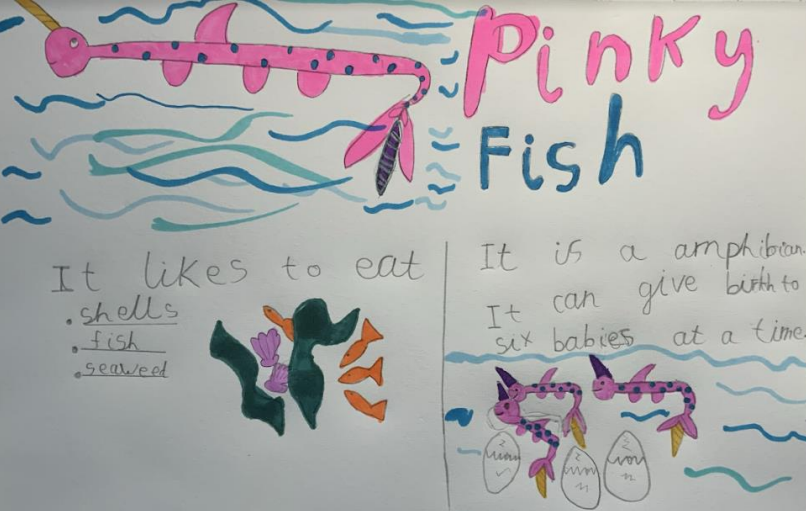 Pinky
Fish
It likes to eat
. shells
. fish
. seaweed
It is a amphibian.
It can give birth to
six babies at a time.